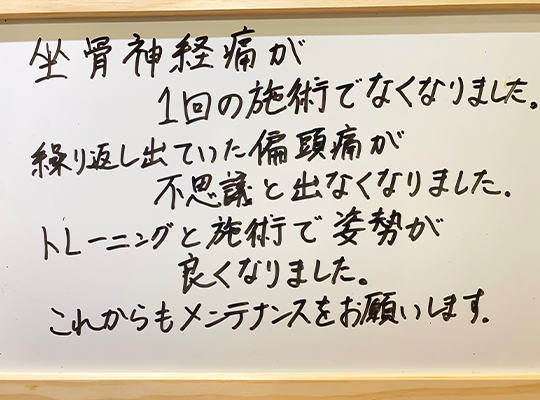 坐骨神経痛が
1回の施術でなくなりました。
繰り返し出ていた偏頭痛が
不思議と出なくなりました。
トレーニングと施術で姿勢が
良くなりました。
これからもメンテナンスをお願いします。